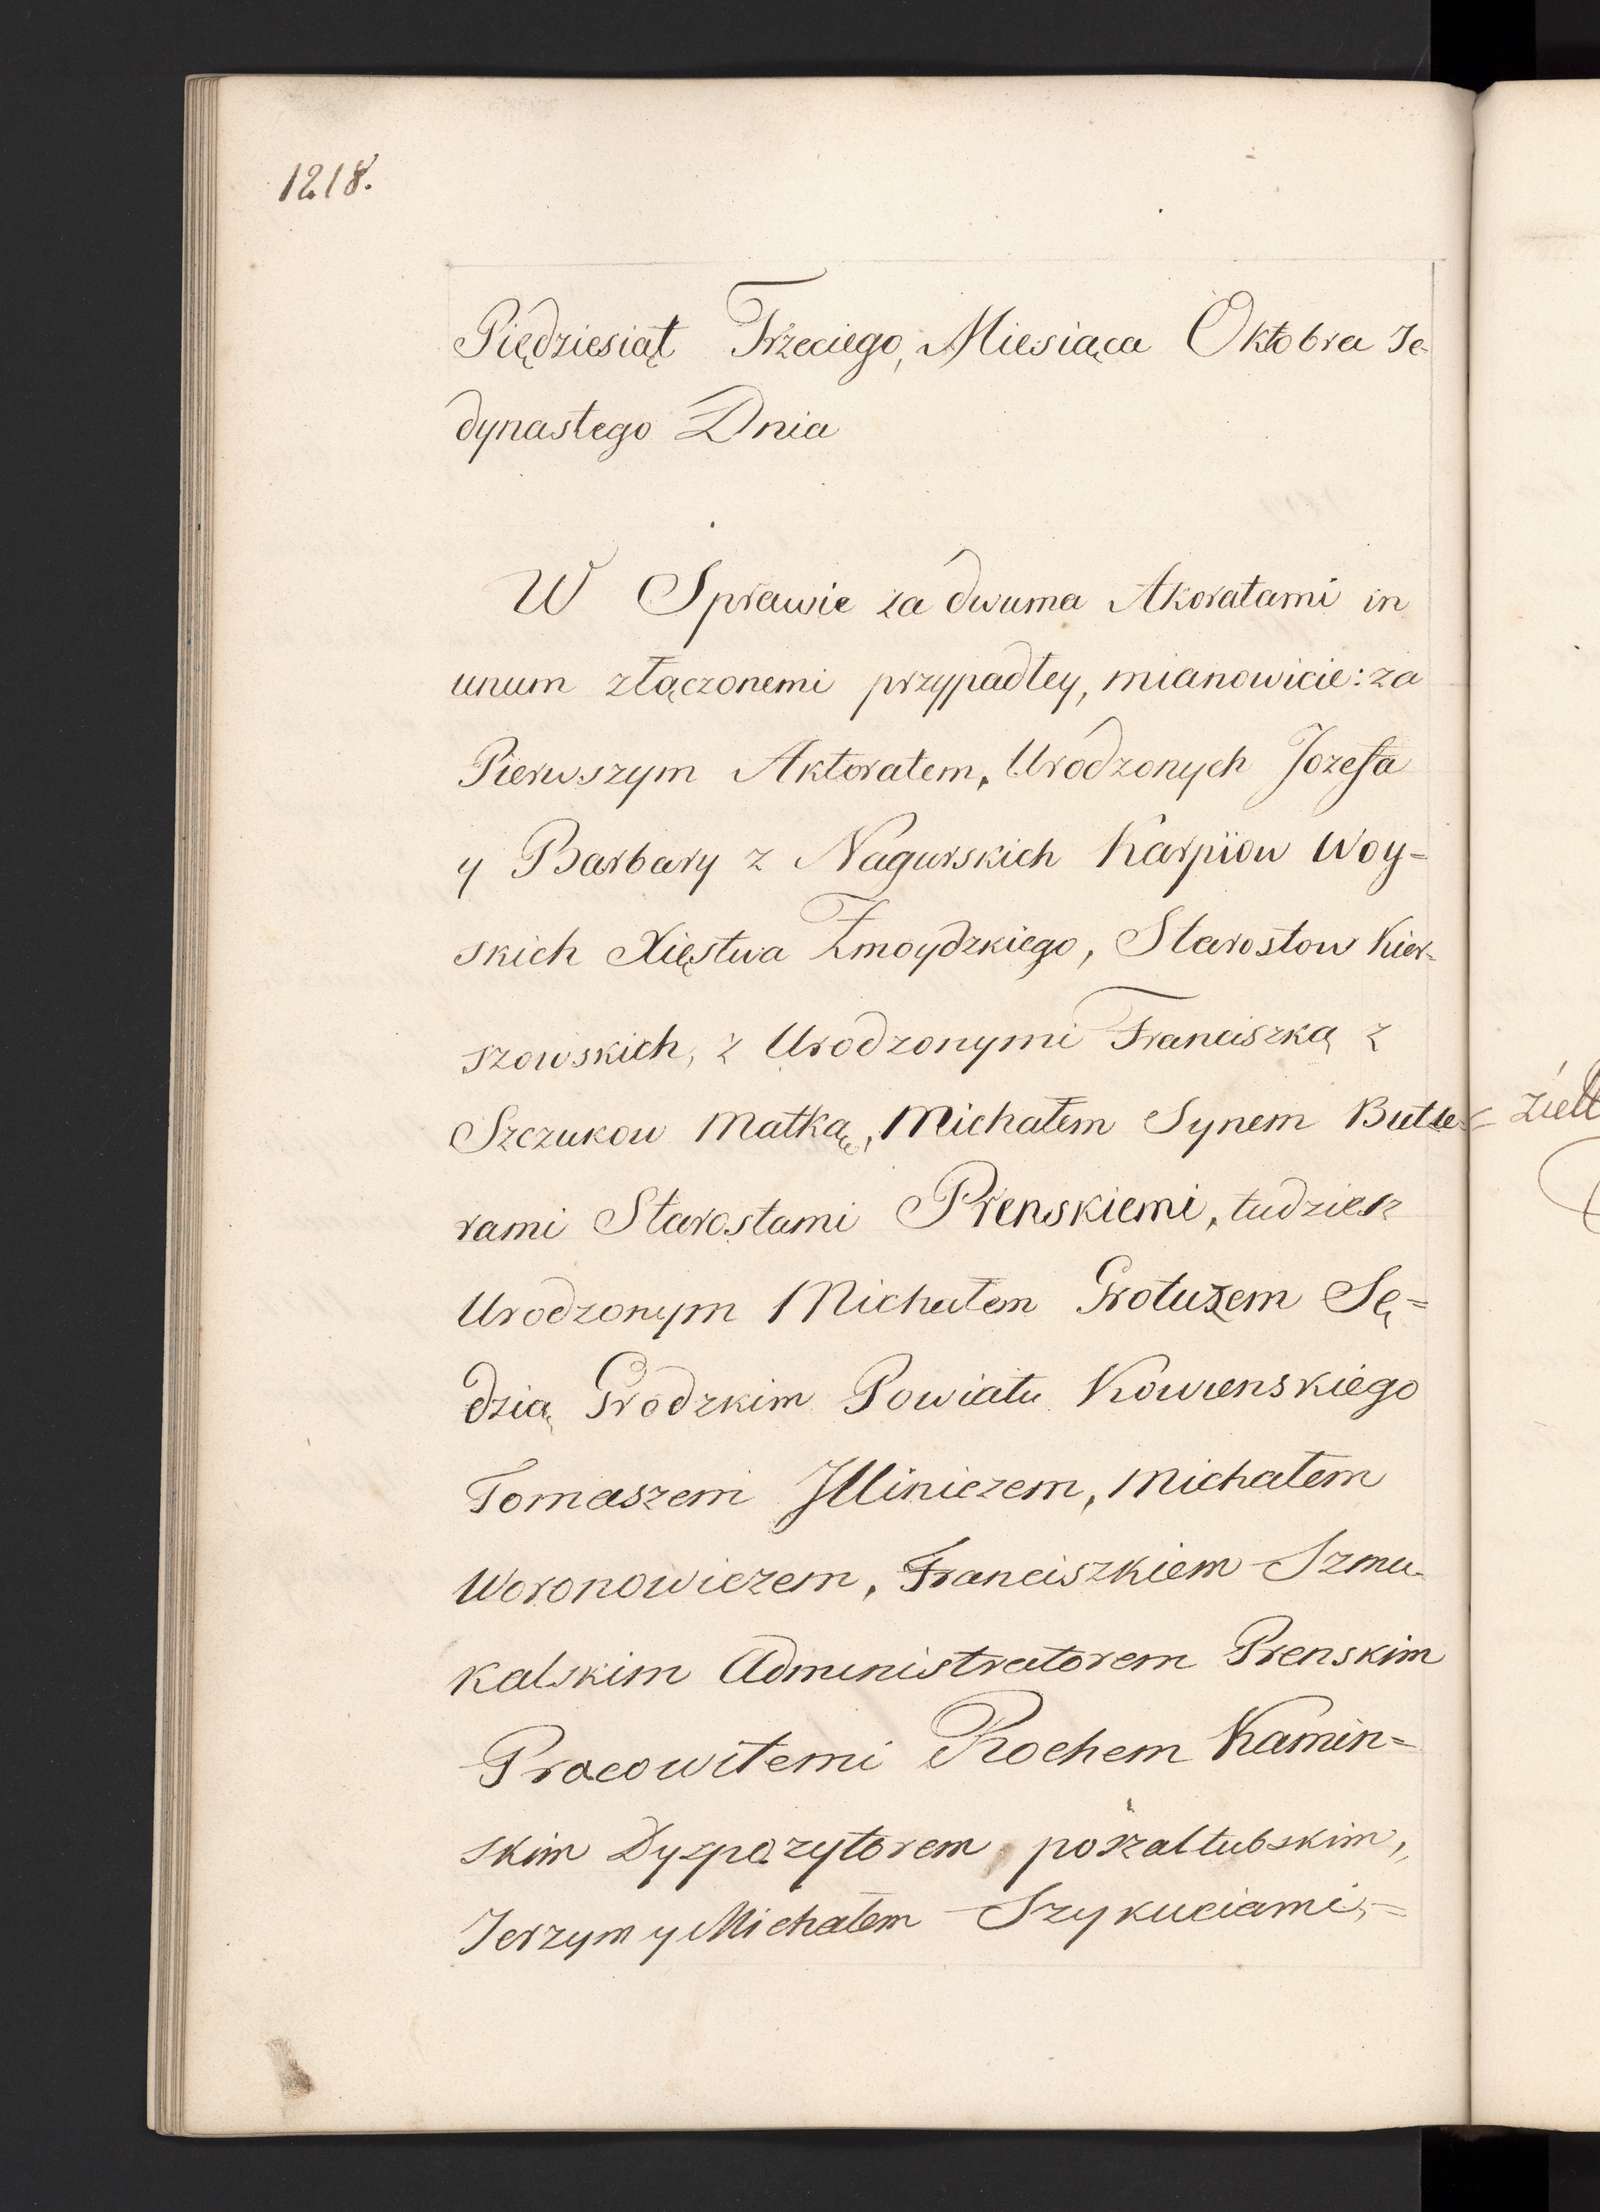 1218.
Piędziesiąt Trzeciego, Miesiąca Oktobra Je-
dynastego Dnia
W Sprawie za dwuma Akoratami in
unum złączonemi przypadłey, mianowicie: za
Pierwszym Aktoratem, Urodzonych Jozefa
y Barbary z Nagurskich Karpiow Woy=
skich Xięstwa Żmoydzkiego, Starostow Kier-
szowskich, z Urodzonymi Franciszką z
Szczukow Matką, Michałem Synem Butle=
rami Starostami Prenskiemi, tudziesz
Urodzonym Michałem Grotuzem Sę=
dzią Grodzkim Powiatu Kowienskiego
Tomaszem Illiniczem, Michałem
Woronowiczem, Franciszkiem Szmu-
kalskim Administratorem Prenskim
Pracowitemi Rochem Kamin=
skim Dyspozytorem poszaltubskim,
Jerzym y Michałem Szykuciami,=